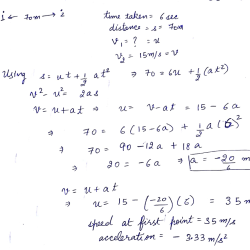 1 ← 70m → 2 time taken = 6 sec
distance = s = 70m
v₁ = ? = u
v₂ = 15 m/s = v
Using s = ut + 1/2 at² ⇒ 70 = 6u + 1/2 (at²)
v² - u² = 2as
v = u + at ⇒ u = v - at = 15 - 6a
⇒ 70 = 6 (15 - 6a) + 1/2 a (6)²
⇒ 70 = 90 - 12a + 18a
⇒ 20 = -6a ⇒ a = -20/6 m
v = u + at
⇒ u = 15 - (-20/6)(6) = 35 m
speed at first point = 35 m/s
acceleration = - 3.33 m/s²